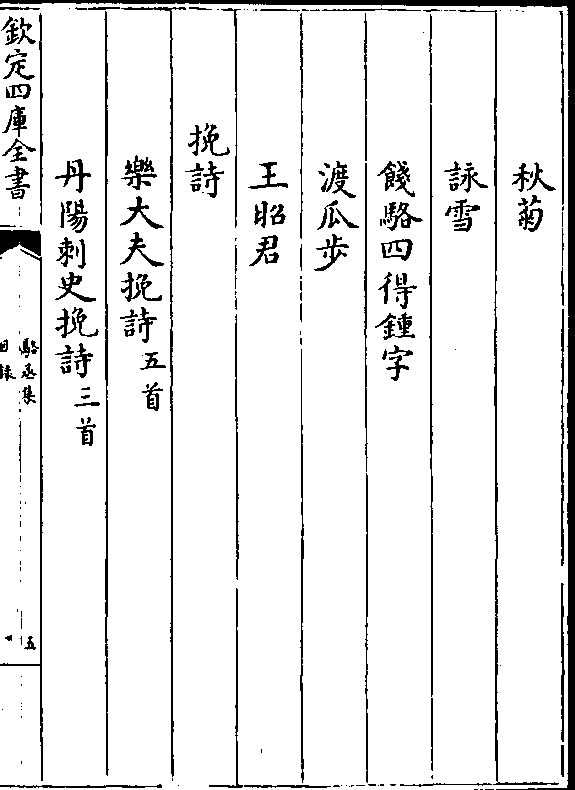 秋菊
詠雪
餞駱四得鍾字
渡瓜步
王昭君
挽詩
樂大夫挽詩五首
丹陽刺史挽詩三首
欽定四庫全書
駱丞集
目錄
五